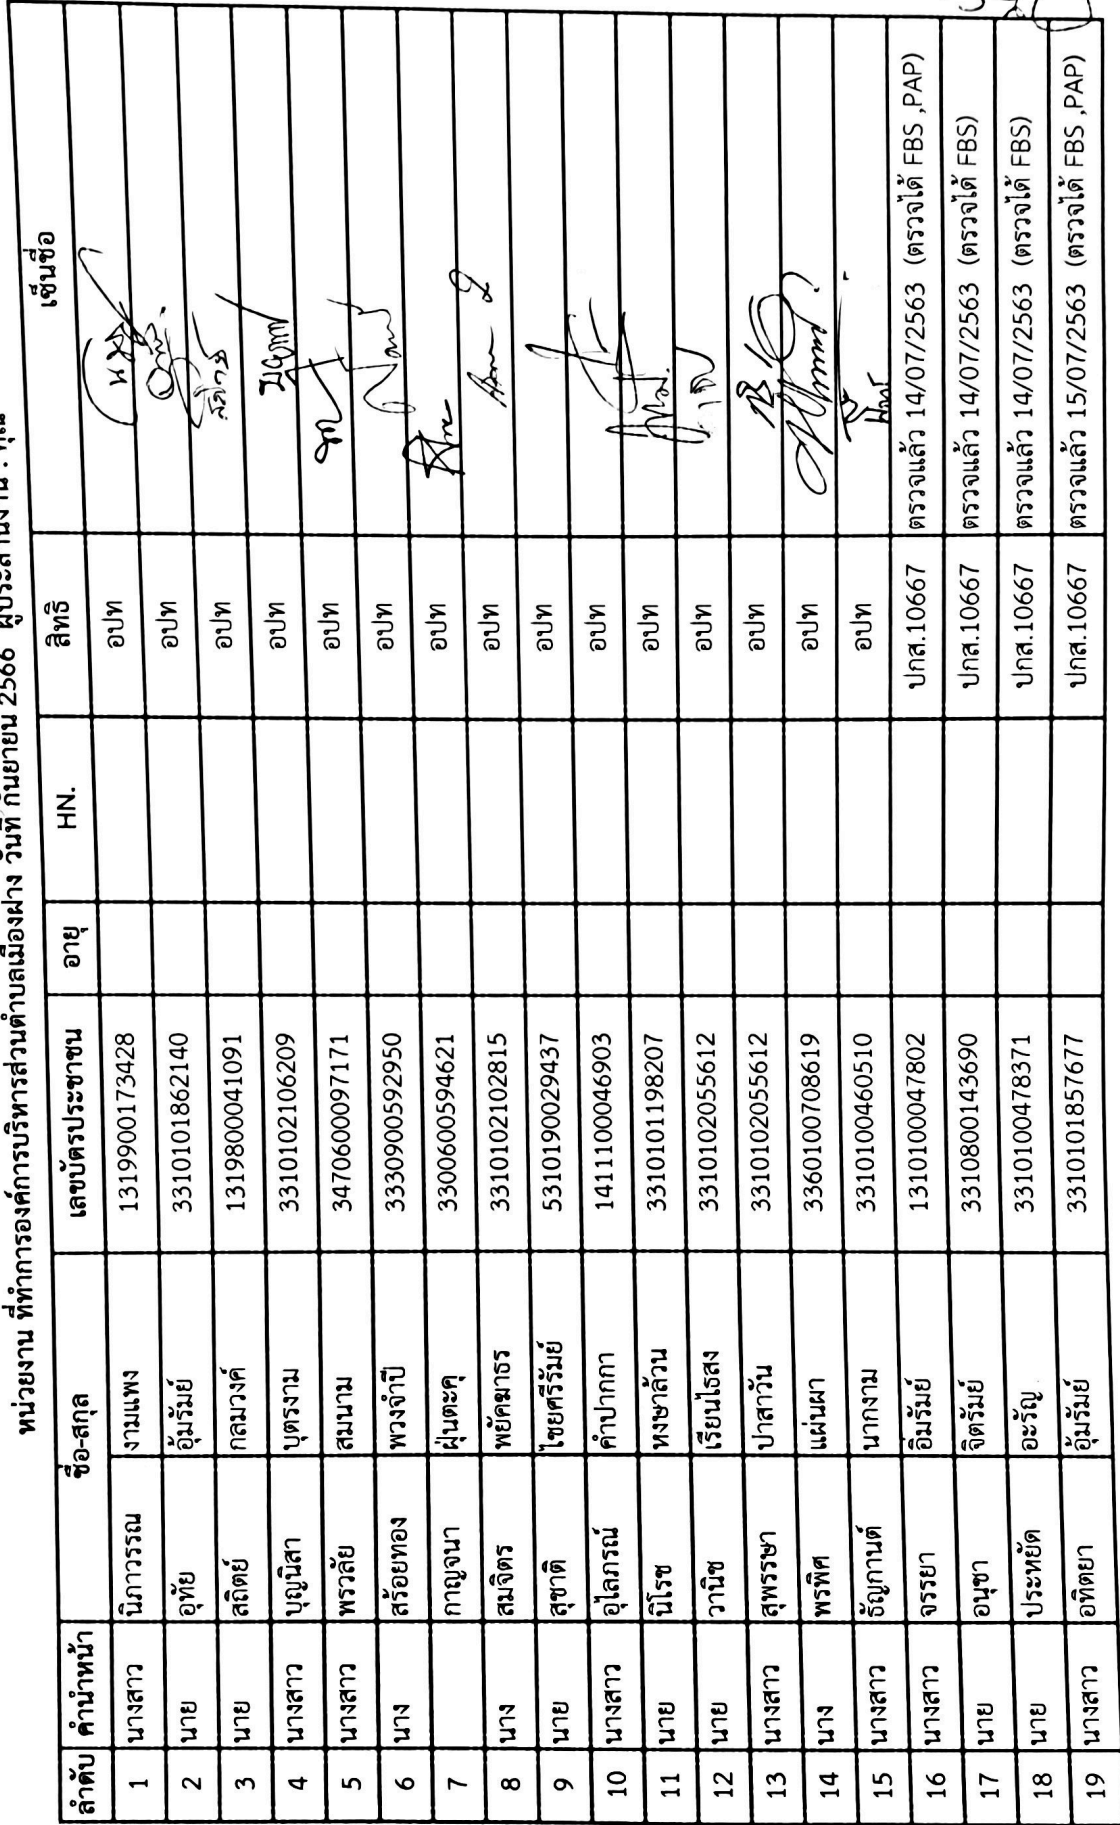 หน่วยงาน ที่ทำการองค์การบริหารส่วนตำบลเมืองฝาง วันที่ กันยายน 2566 ผู้ประสานงาน : คุณ
ลำดับ คำนำหน้า ชื่อ-สกุล เลขบัตรประชาชน อายุ HN. สิทธิ เซ็นชื่อ
1 นางสาว นิภาวรรณ งามแพง 1319900173428 อปท
2 นาย อุทัย อุ้มรัมย์ 3310101862140 อปท
3 นาย สถิตย์ กลมวงค์ 1319800041091 อปท
4 นางสาว บุญนิสา บุตรงาม 3310102106209 อปท
5 นางสาว พรวลัย สมนาม 3470600097171 อปท
6 นาง สร้อยทอง พวงจำปี 3330900592950 อปท
7 กาญจนา ฝุ่นตะคุ 3300600594621 อปท
8 นาง สมจิตร พยัคฆาธร 3310102102815 อปท
9 นาย สุชาติ ไชยศรีรัมย์ 5310190029437 อปท
10 นางสาว อุไลภรณ์ คำปากกา 1411100046903 อปท
11 นาย นิโรช หงษาล้วน 3310101198207 อปท
12 นาย วานิช เรียนไธสง 3310102055612 อปท
13 นางสาว สุพรรษา ปาสาวัน 3310102055612 อปท
14 นาง พรพิศ แผ่นผา 3360100708619 อปท
15 นางสาว ธัญกานต์ นากงาม 3310100460510 อปท
16 นางสาว จรรยา อิ่มรัมย์ 1310100047802 ปกส.10667 ตรวจแล้ว 14/07/2563 (ตรวจได้ FBS ,PAP)
17 นาย อนุชา จิตรัมย์ 3310800143690 ปกส.10667 ตรวจแล้ว 14/07/2563 (ตรวจได้ FBS)
18 นาย ประหยัด อะรัญ 3310100478371 ปกส.10667 ตรวจแล้ว 14/07/2563 (ตรวจได้ FBS)
19 นางสาว อทิตยา อุ้มรัมย์ 3310101857677 ปกส.10667 ตรวจแล้ว 15/07/2563 (ตรวจได้ FBS ,PAP)